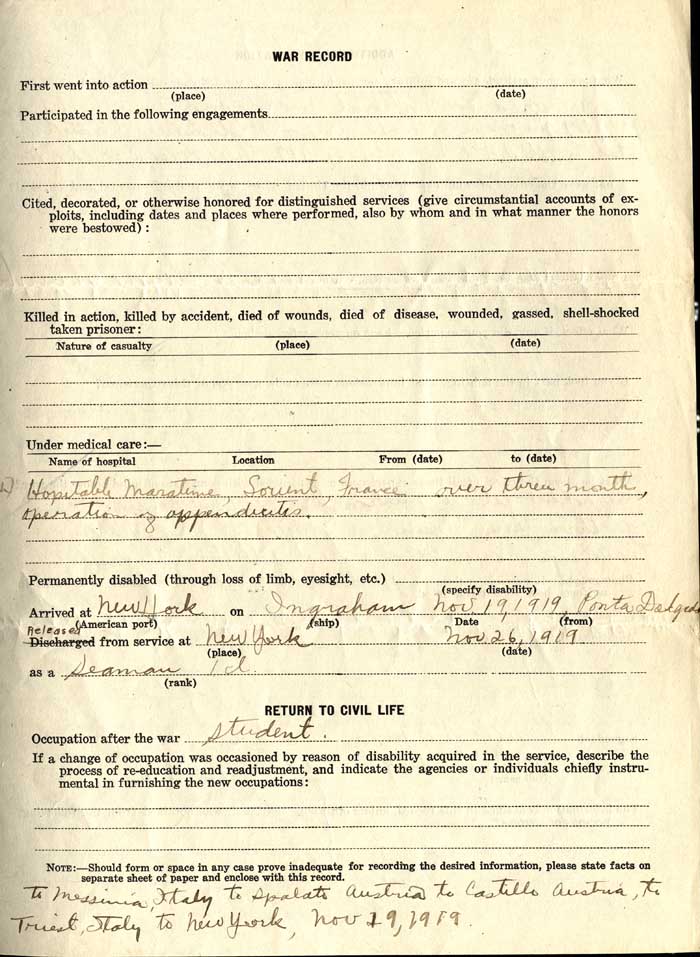 WAR RECORD
First went into action
(place) (date)
Participated in the following engagements
Cited, decorated, or otherwise honored for distinguished services (give circumstantial accounts of ex-
ploits, including dates and places where performed, also by whom and in what manner the honors
were bestowed) :
Killed in action, killed by accident, died of wounds, died of disease, wounded, gassed, shell-shocked
taken prisoner:
Nature of casualty (place) (date)
Under medical care:—
Name of hospital Location From (date) to (date)
Hopitable Maratime, France over three month,
operation of appendicites.
Permanently disabled (through loss of limb, eyesight, etc.)
(specify disability)
Arrived at New York on Ingraham Nov 19, 1919, Ponta
(American port) (ship) Date (from)
Released
Discharged from service at New York Nov 26, 1919
(place) (date)
as a Seaman
(rank)
RETURN TO CIVIL LIFE
Occupation after the war student.
If a change of occupation was occasioned by reason of disability acquired in the service, describe the
process of re-education and readjustment, and indicate the agencies or individuals chiefly instru-
mental in furnishing the new occupations:
NOTE:—Should form or space in any case prove inadequate for recording the desired information, please state facts on
separate sheet of paper and enclose with this record.
to Messinia, Italy to Spalato Austria to Castillo Austria, to
Triest, Italy to New York, Nov 19, 1919.